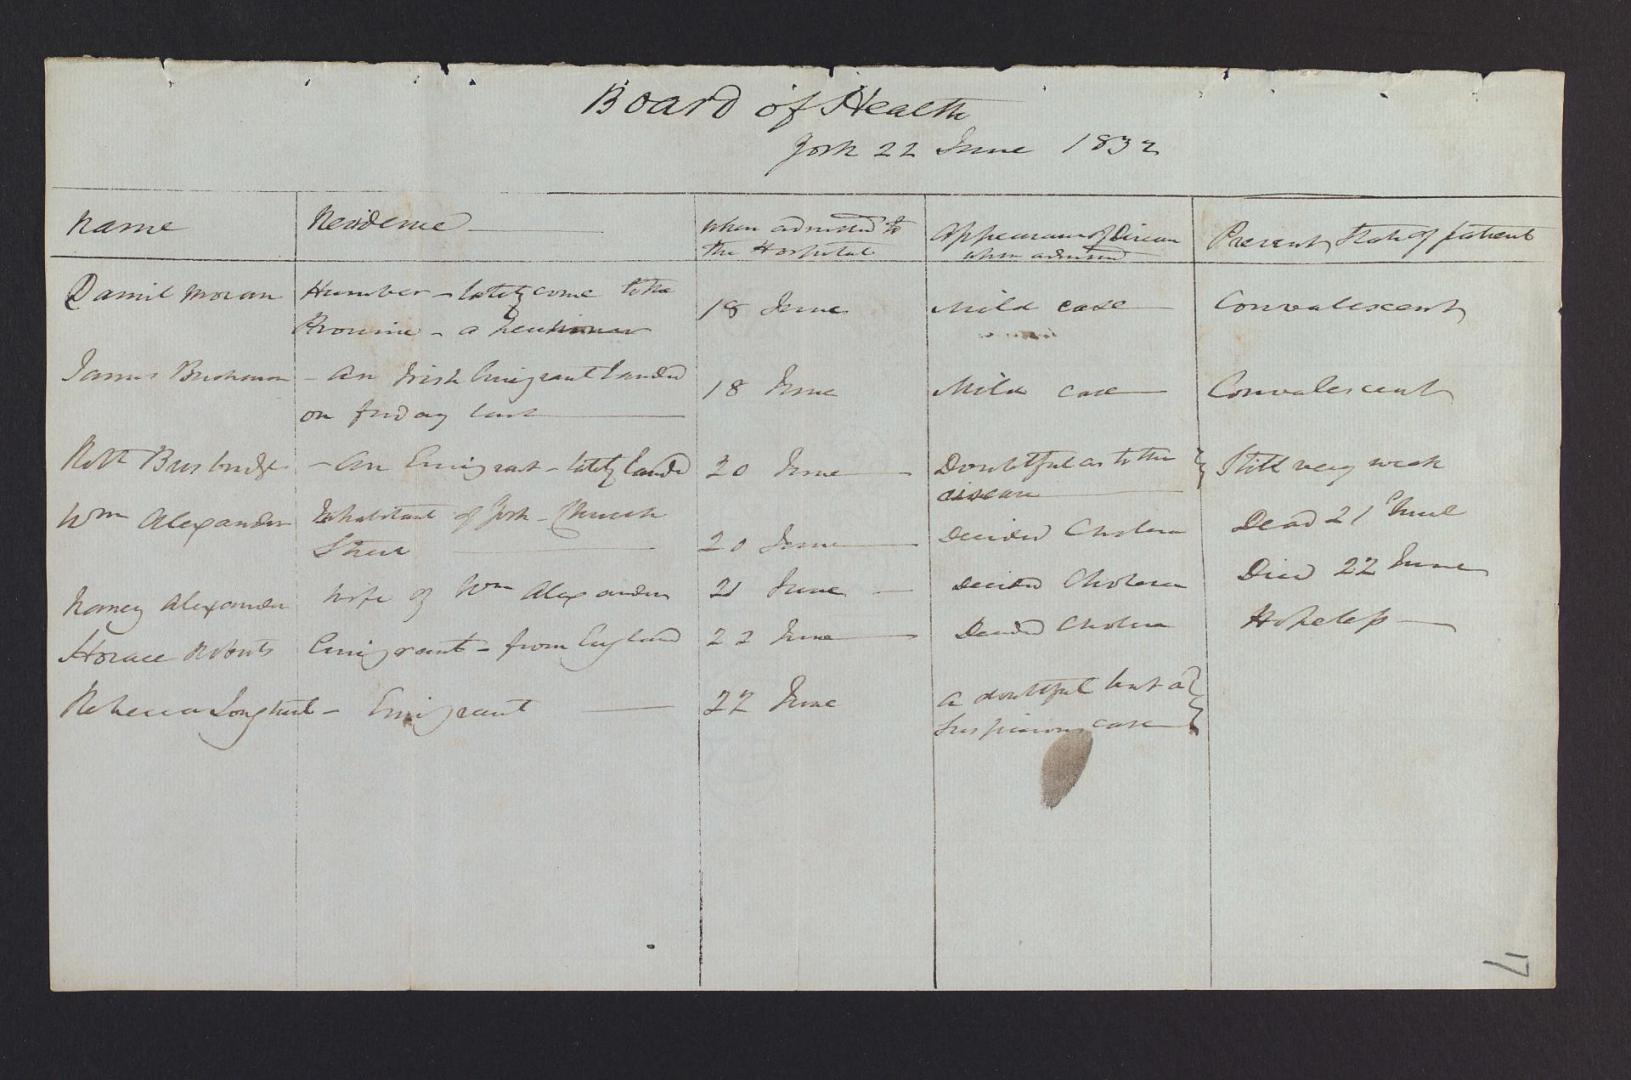 Board of Health
York 22 June 1832
Name Residence when admitted to Appearance of Disease Present State of patient
the Hospital when admitted
Daniel Moran Humber - lately come to the 18 June Mild case Convalescent
Province - a Pensioner
James - An Irish Emigrant landed 18 June Mild case Convalescent
on friday last
Robt Busbridge - An Emigrant - lately landd 20 June Doubtful as to the Still very weak
disease
Wm Alexander Inhabitant of York - Church 20 June Decided Cholera Dead 21 June
Street
Nancy Alexander wife of Wm Alexander 21 June Decided Cholera Died 22 June
Horace Roberts Emigrant - from England 22 June Decided Cholera Hopeless
Rebecca - Emigrant 22 June A doubtful but a
suspicious case
17